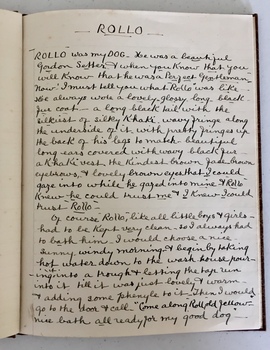 ROLLO
ROLLO was my DOG. He was a beautiful
Gordon Setter & when you know that you
will know that he was a Perfect Gentleman
Now I must tell you what Rollo was like
He always wore a lovely glossy long black
fur coat — a long black tail with the
silkiest of silky Khaki wavy fringe along
the underside of it, with pretty fringes up
the back of his legs to match — beautiful
long ears covered with wavy black fur
a Khaki vest, the kindest brown face — brown
eyebrows, & lovely brown eyes that I could
gaze into while he gazed into mine & Rollo
Knew he could trust me & I knew I could
trust Rollo —
Of course Rollo, like all little boys & girls —
had to be kept very clean — so I always had
to bath him. I would choose a nice
sunny, windy morning & begin by taking
hot water down to the wash house, pour-
ing into a trough & letting the tap run
into it till it was just lovely & warm —
& adding some phenyle to it. Then I would
go to the door & call — "Come along Roll old fellow —
nice bath all ready for my good dog —